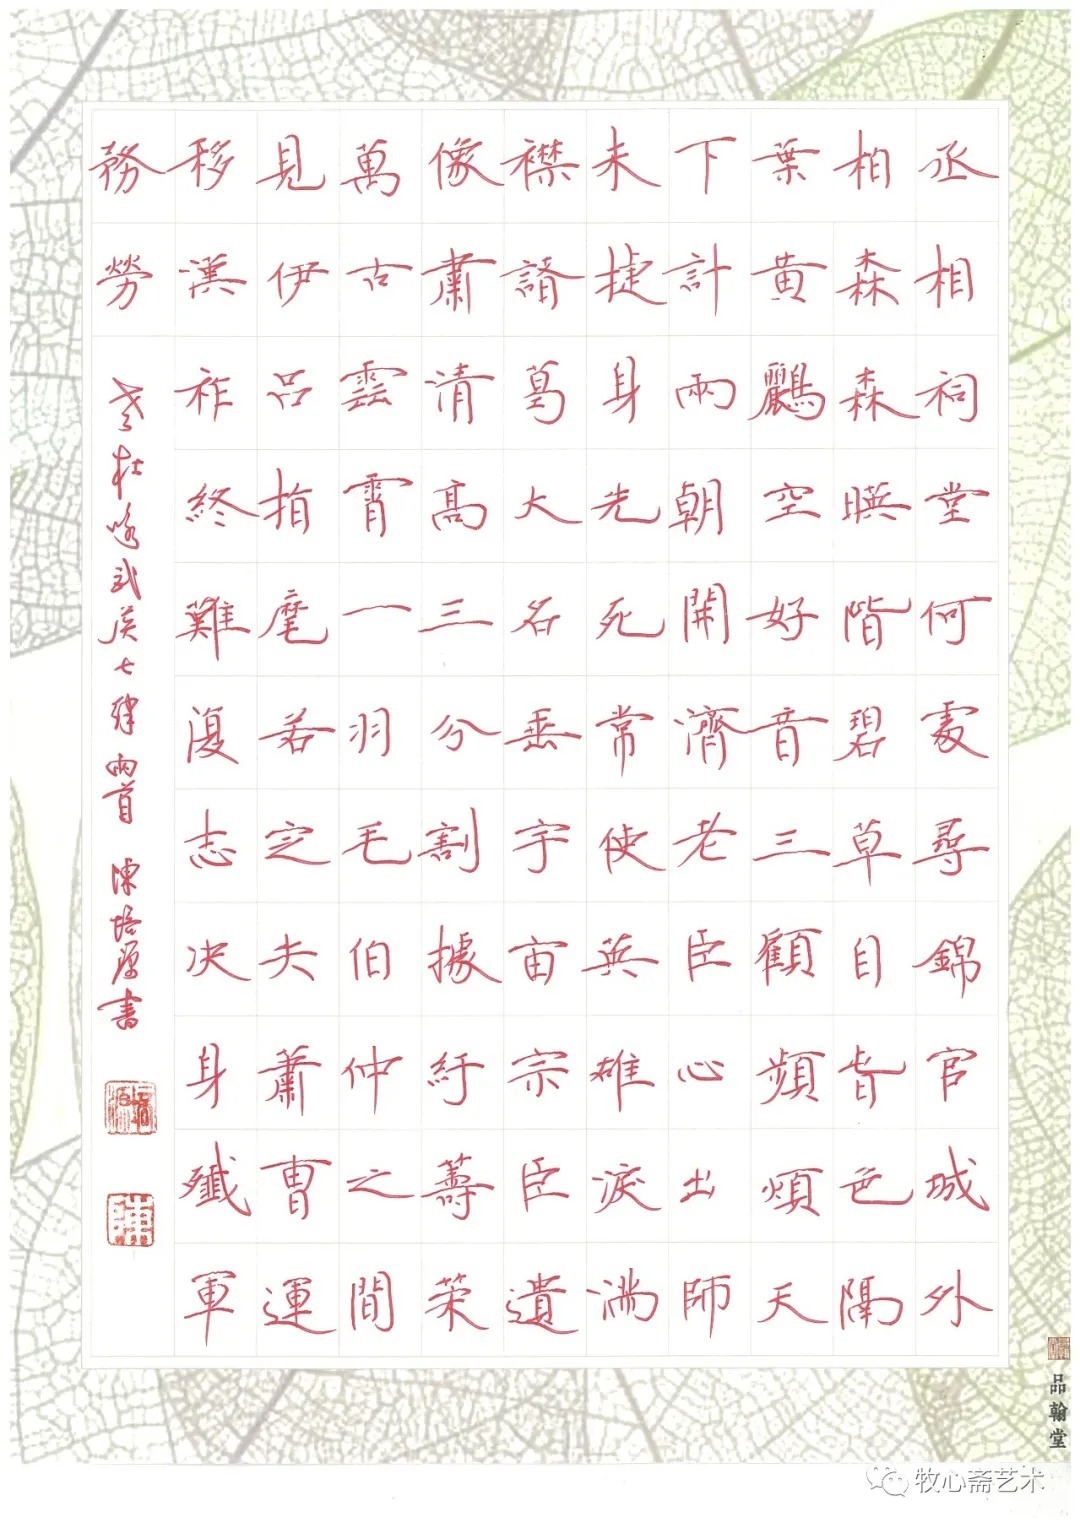 丞相祠堂何處尋錦官城外
柏森森暎階碧草自春色隔
葉黃鸝空好音三顧頻煩天
下計兩朝開濟老臣心出師
未捷身先死常使英雄淚滿
襟諸葛大名垂宇宙宗臣遺
像肅清高三分割據紆籌策
萬古雲霄一羽毛伯仲之間
見伊呂指麾若定失蕭曹運
移漢祚終難復志決身殲軍
務勞
老杜咏武侯七律兩首 陳培源書
陳
品翰堂
牧心斋艺术